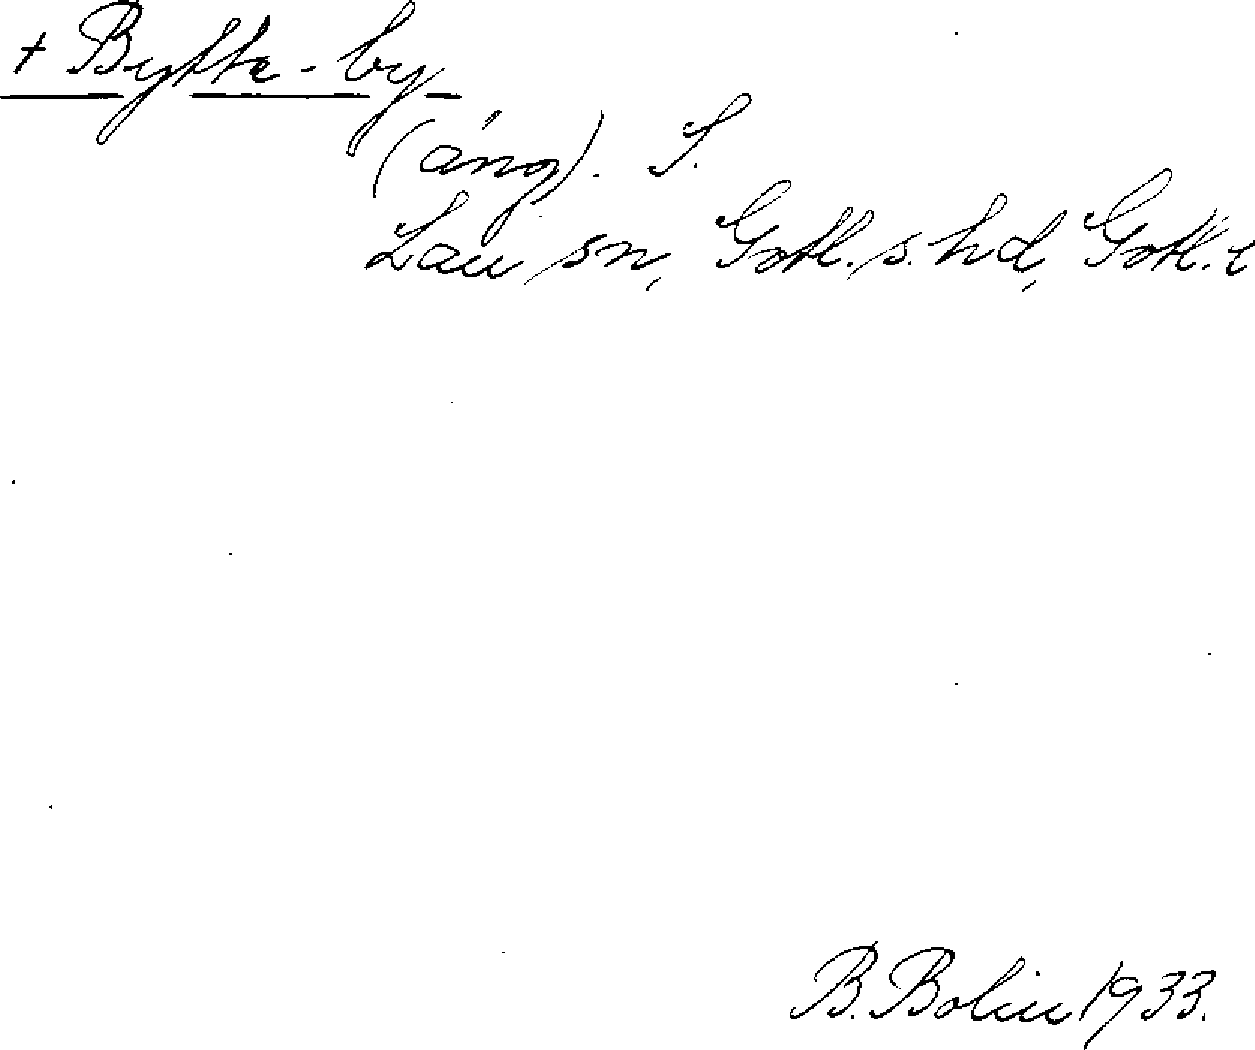 + Bytte-by
(äng). S.
Lau sn, Gotl. s. hd, Gotl. l
B. Bolin 1933.